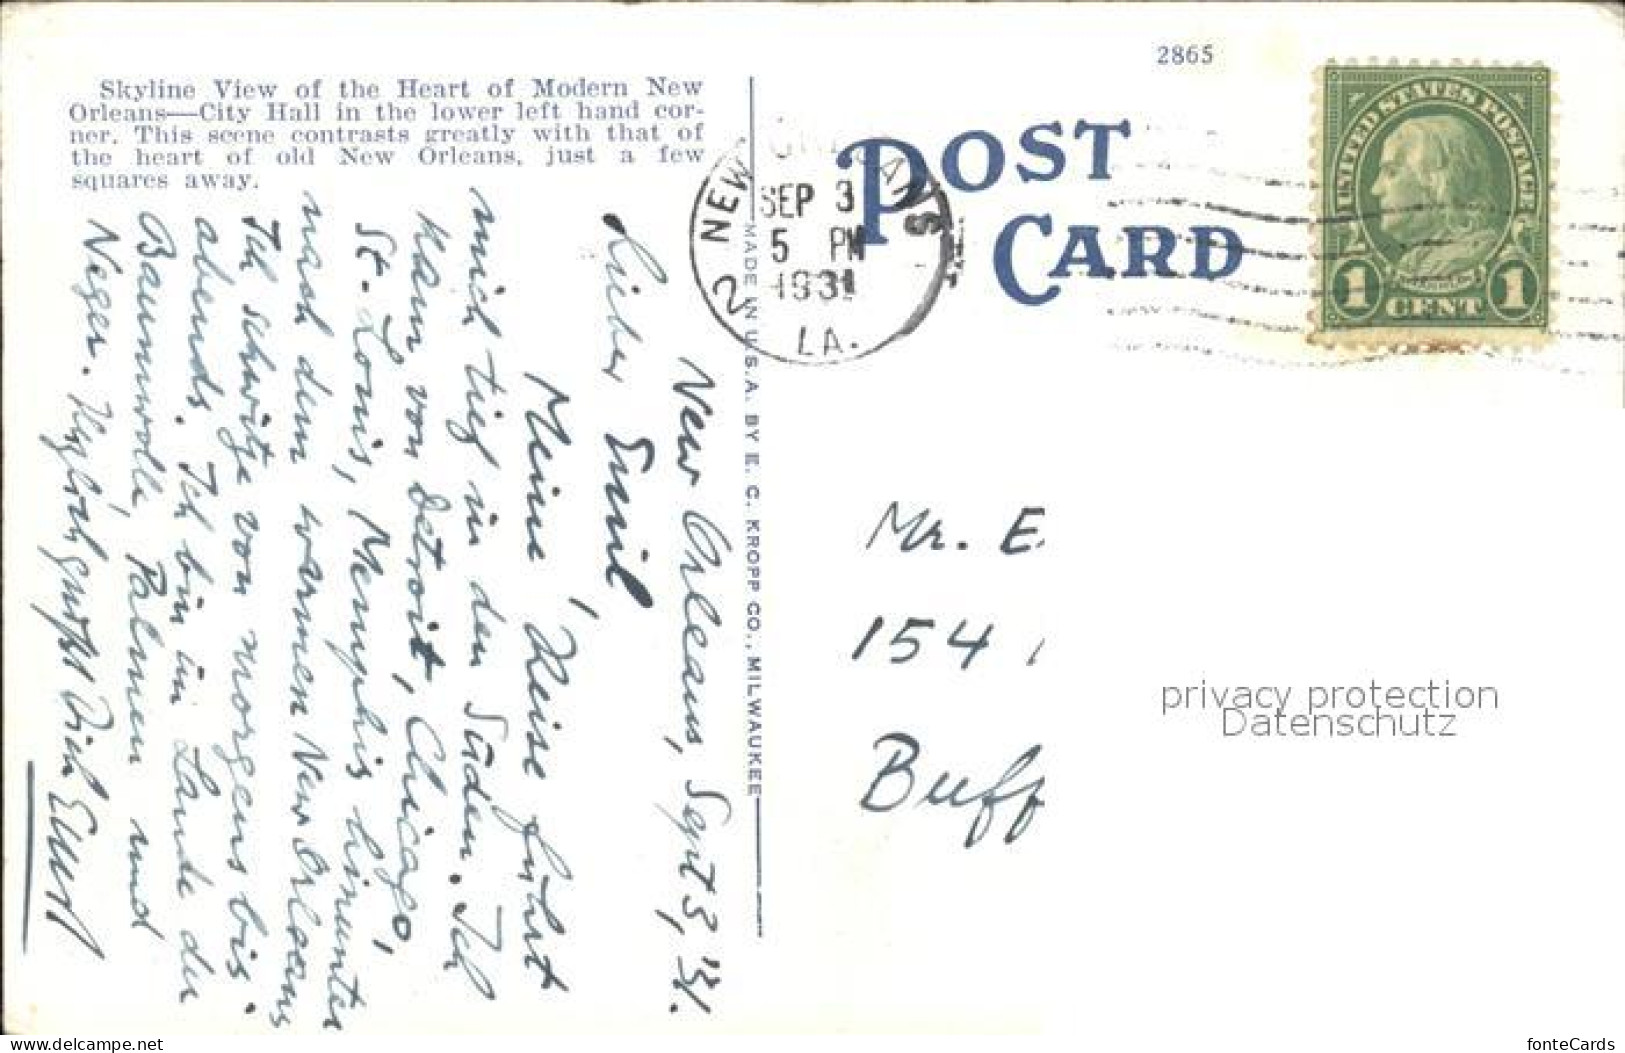 Skyline View of the Heart of Modern New
Orleans—City Hall in the lower left hand cor-
ner. This scene contrasts greatly with that of
the heart of old New Orleans, just a few
squares away.
New Orleans, Sept 3, '31.
Lieber Emil,
Meine Reise führt
mich tief in den Süden. Ich
kam von Detroit, Chicago,
St. Louis, Memphis hinunter
nach dem warmen New Orleans
Ich schwitze von morgens bis
abends. Ich bin im Lande der
Baumwolle, Palmen und
Neger. Herzlich grüßt Dich
MADE IN U.S.A. BY E. C. KROPP CO., MILWAUKEE
2865
POST
CARD
NEW ORLEANS
SEP 3
5 PM
1931
LA.
2
UNITED STATES POSTAGE
FRANKLIN
1 CENT 1
Mr. E.
154
Buff
privacy protection
Datenschutz
www.delcampe.net
fonteCards